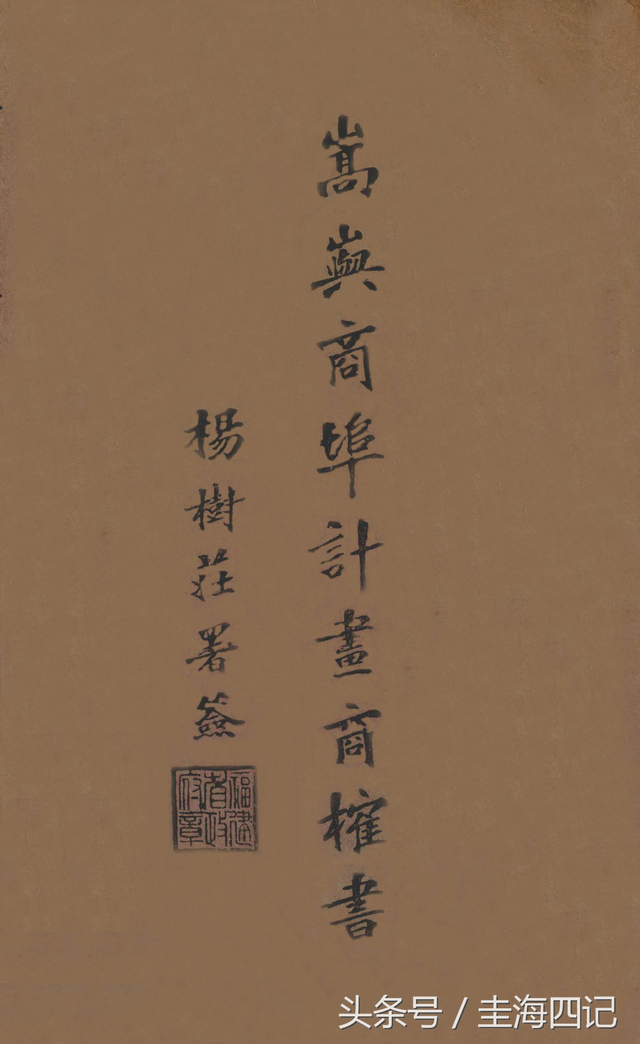 嵩嶼商埠計畫商榷書
楊樹莊署簽
福建省政府章
头条号 / 圭海四记